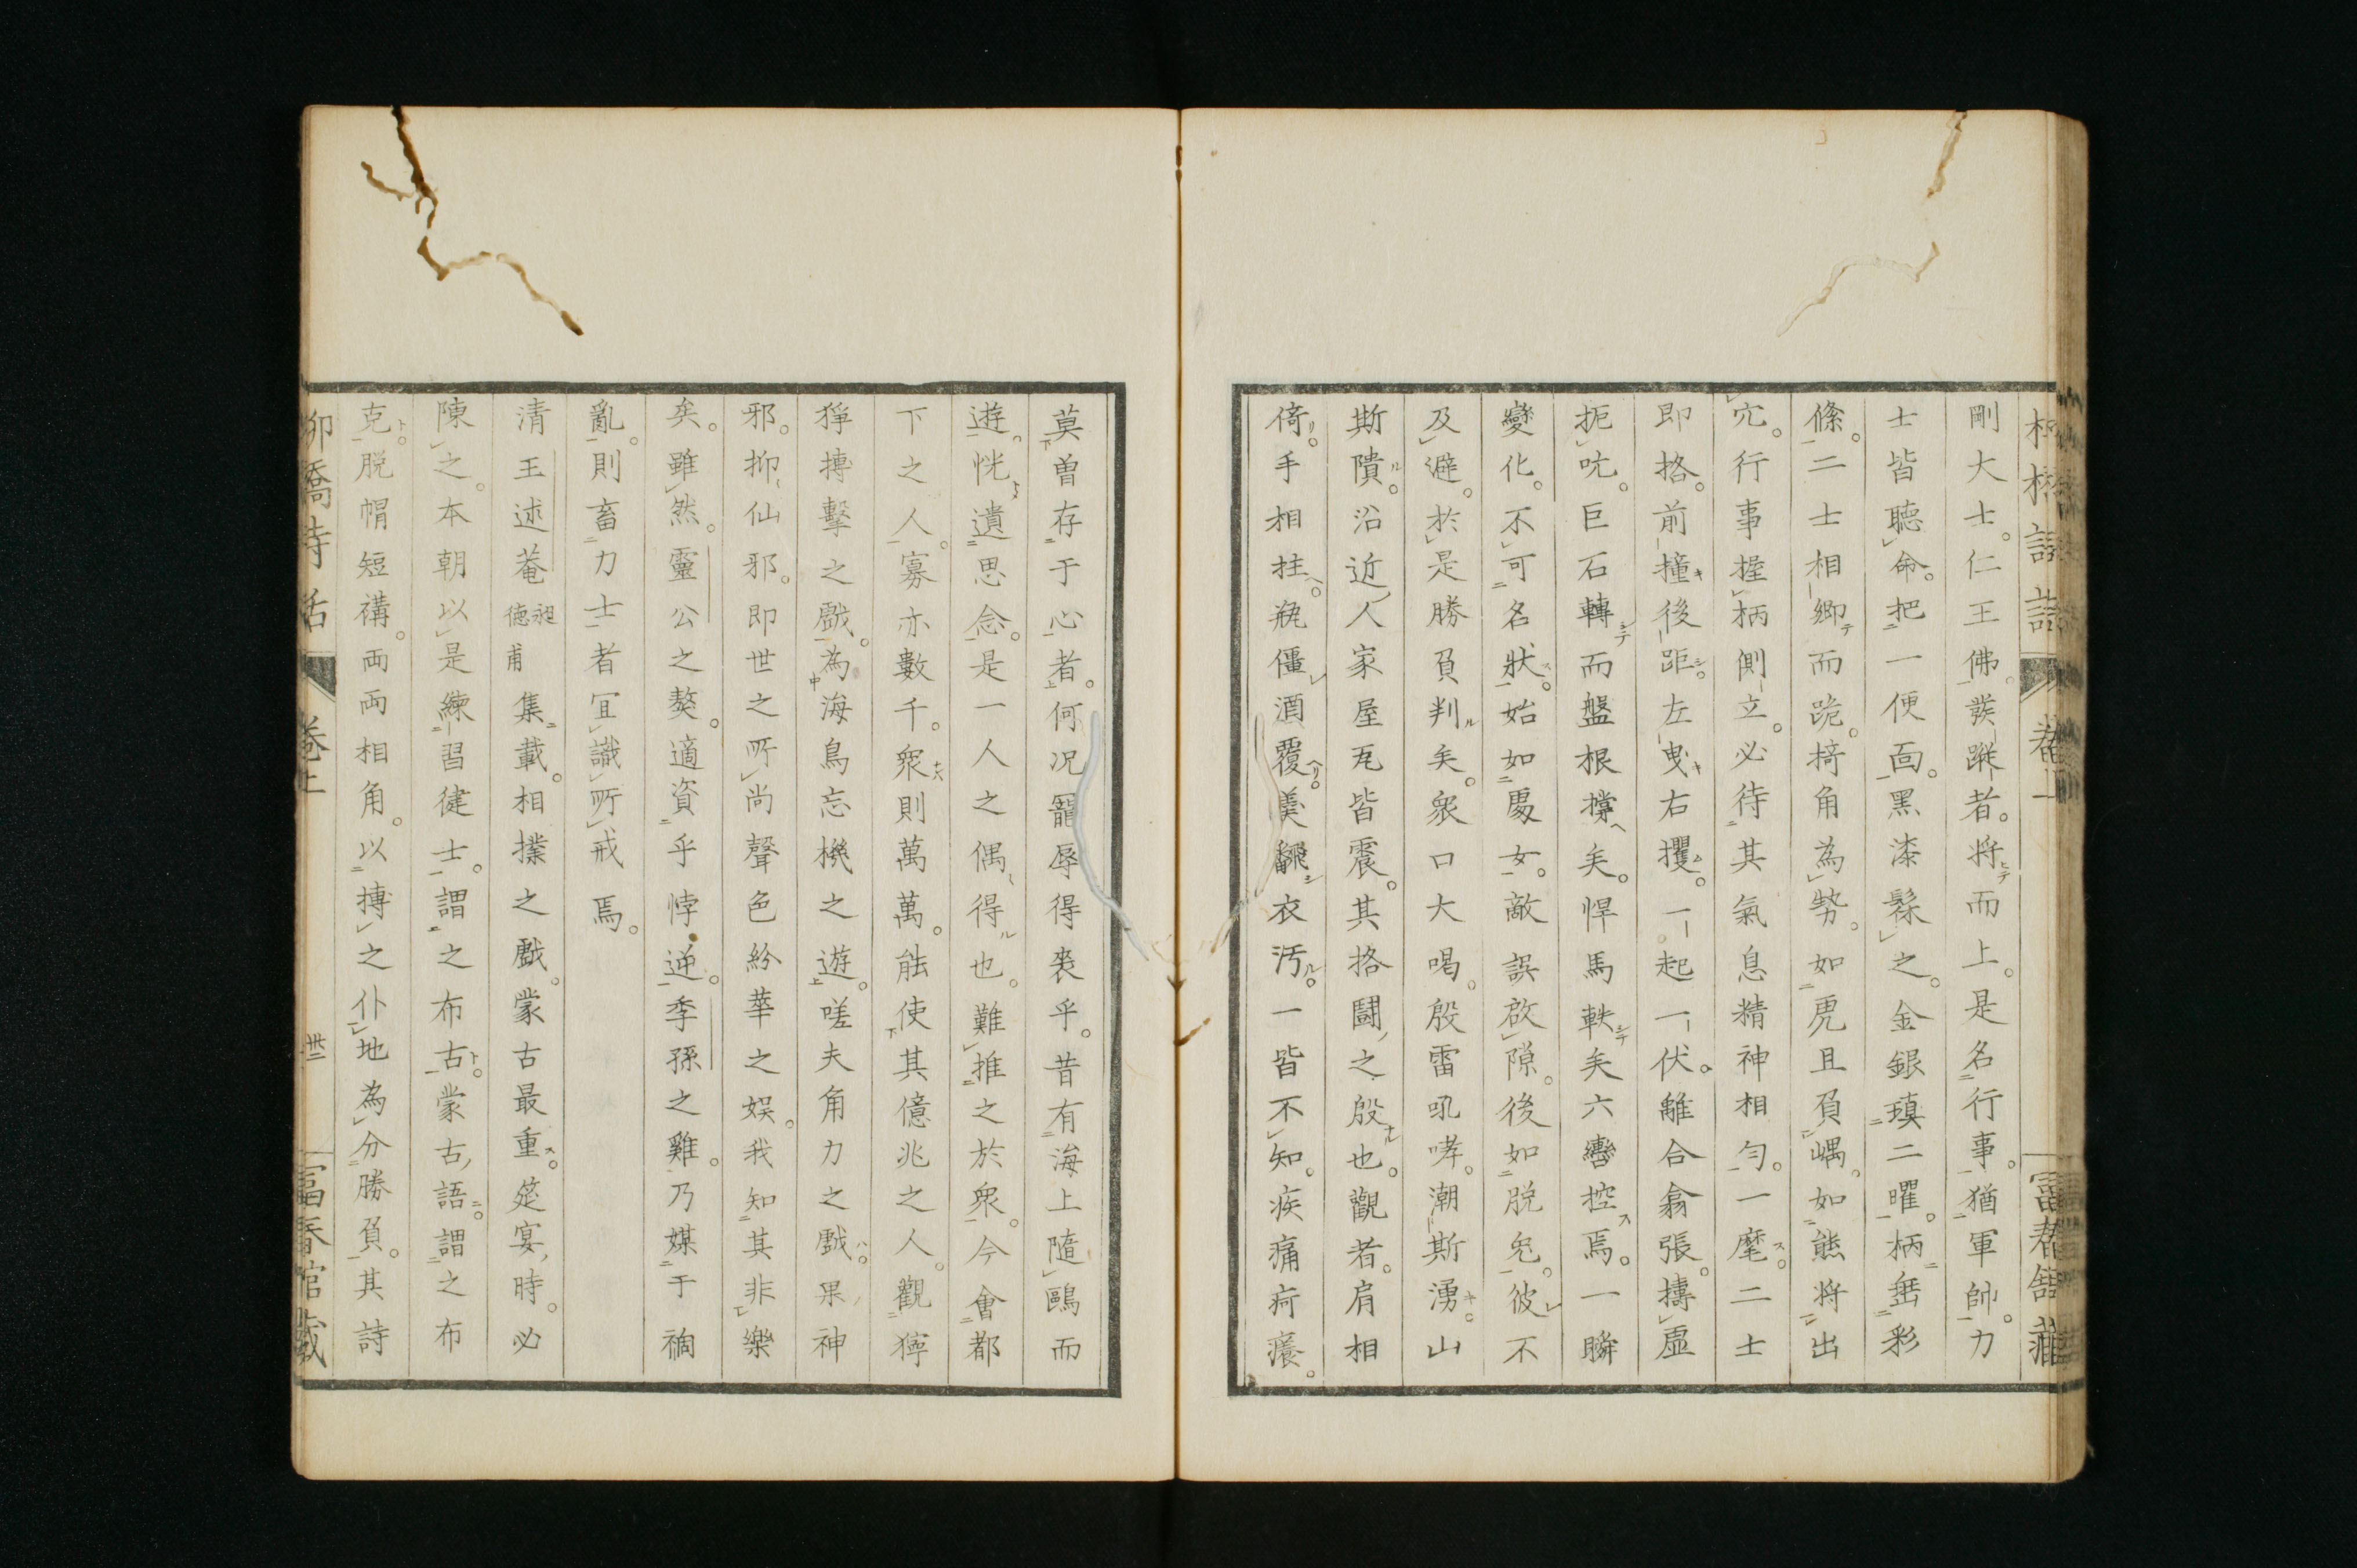 剛大士。仁王佛。謑蹤者。将而上。是名行事。猶軍帥。力
士皆聴命。把一便面。黒漆髹之。金銀瑱二曜。柄垂彩
絛。二士相郷而跪。掎角為勢。如虎且負嵎。如熊将出
穴。行事握柄側立。必待其氣息精神相匀。一麾。二士
即挌。前撞後距。左曳右攫。一起一伏。離合翕張。擣虛
扼吭。巨石轉而盤根撐矣。悍馬軼矣六轡控焉。一瞬
變化。不可名狀。始如處女。敵誤啟隙。後如脱兎。彼不
及避。於是勝負判矣。衆口大喝。殷雷吼哮。潮斯湧。山
斯隤。沿近人家屋瓦皆震。其挌鬪之殷也。觀者。肩相
倚。手相拄。瓶僵酒覆。羹飜衣汚。一皆不知。疾痛疴癢。
莫曽存于心者。何况寵辱得喪乎。昔有海上隨鷗而
遊。恍遺思念。是一人之偶得也。難推之於衆。今會都
下之人。寡亦數千。衆則萬萬。能使其億兆之人。觀獰
猙搏擊之戲。為海鳥忘機之遊。嗟夫角力之戲。果神
邪。抑仙邪。即世之所尚聲色紛華之娯。我知其非樂
矣。雖然。靈公之獒。適資乎悖逆。季孫之雞。乃媒于禍
亂。則畜力士者宜識所戒焉。
清王述菴昶德甫集載。相撲之戲。蒙古最重。筵宴時。必
陳之。本朝以是練習健士。謂之布古。蒙古語。謂之布
克。脱帽短褠。両両相角。以搏之仆地為分勝負。其詩
柳橋詩話 卷上 卅二 富春館藏